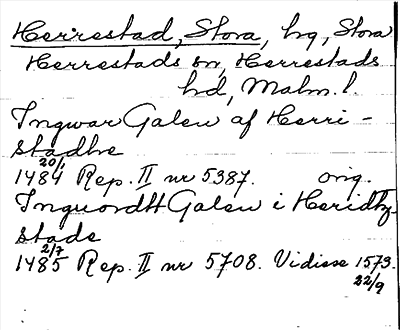 Herrestad, Stora, by, Stora
Herrestads sn, Herrestads
hd, Malm. l.
Ingwar Galen af Herri-
stadhe
20/1
1484 Rep. II nr 5387. orig.
Inguordtt Galen i Heridtz
stade
2/7
1485 Rep. II nr 5708. Vidisse 1573.
22/9